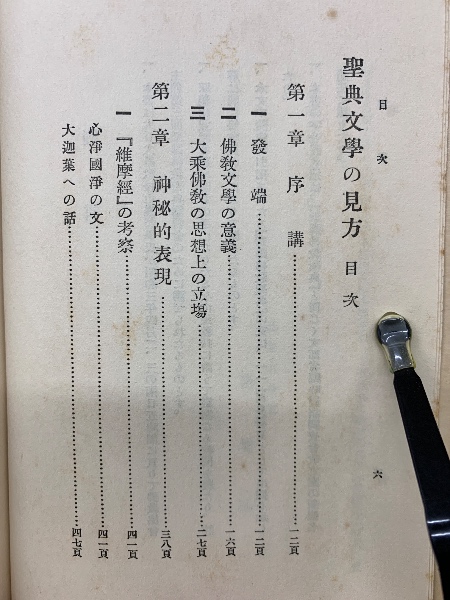 目次
聖典文學の見方 目次
第一章 序講……一二頁
一 發端……一二頁
二 佛教文學の意義……一六頁
三 大乘佛教の思想上の立場……二七頁
第二章 神秘的表現……三八頁
一 『維摩經』の考察……四一頁
心淨國淨の文……四一頁
大迦葉への話……四七頁
六